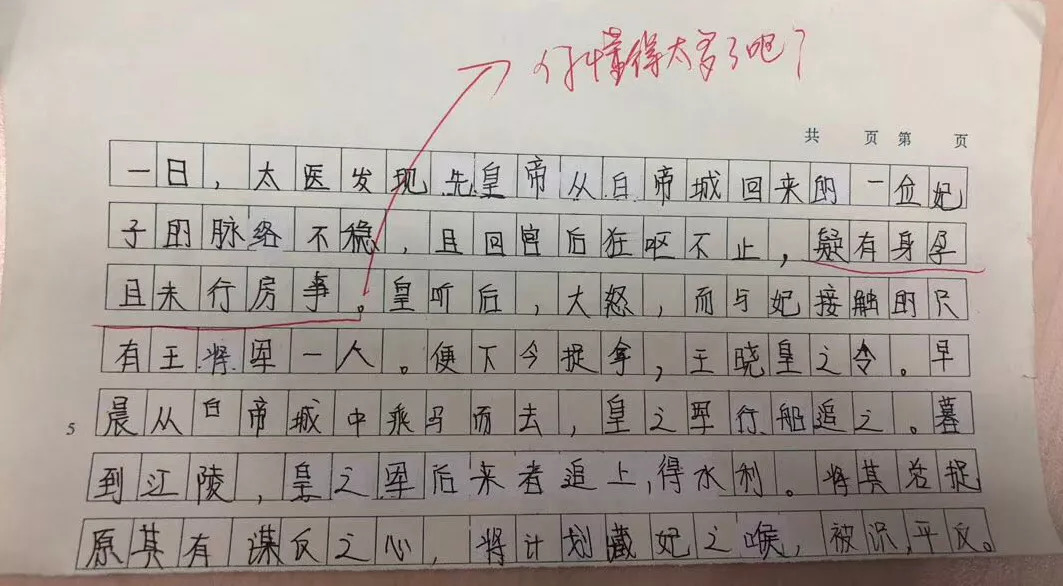 你懂得太多了吧？
共 页 第 页
一日，太医发现先皇帝从白帝城回来的一位妃
子的脉络不稳，且回宫后狂呕不止，疑有身孕
且未行房事。皇听后，大怒，而与妃接触的只
有王将军一人。便下令捉拿，王晓皇之令。早
晨从白帝城中乘马而去，皇之军行船追之。暮
5
到江陵，皇之军后来者追上，得水利。将其总捉
原其有谋反之心，将计划藏妃之喉，被识，平反。